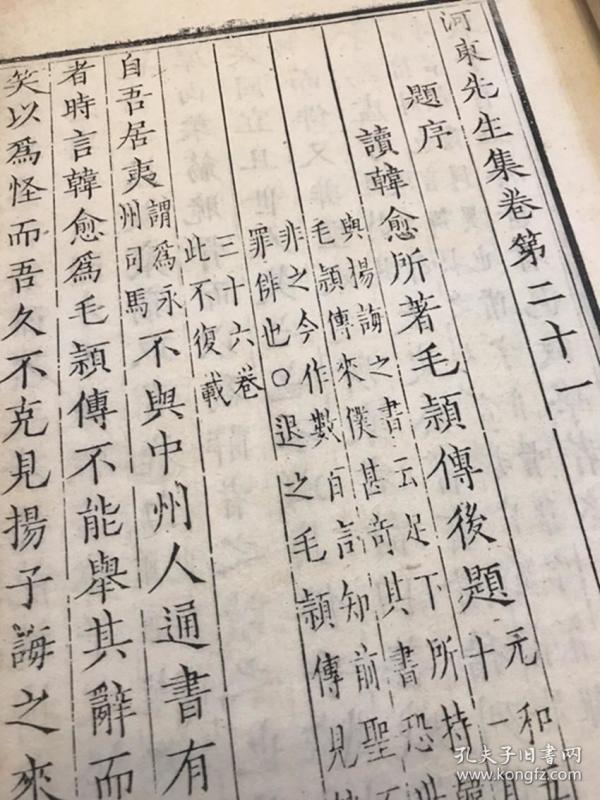 河東先生集卷第二十一
題序
讀韓愈所著毛穎傳後題
元和五
十一月
與揚誨之書云足下所持
毛穎傳來僕甚奇其書恐世
非之今作數百言知前聖不
罪俳也○退之毛穎傳見
三十六卷
此不復載
自吾居夷
謂爲永
州司馬
不與中州人通書有
者時言韓愈爲毛穎傳不能舉其辭而
笑以爲怪而吾久不克見揚子誨之來
孔夫子旧书网
www.kongfz.com